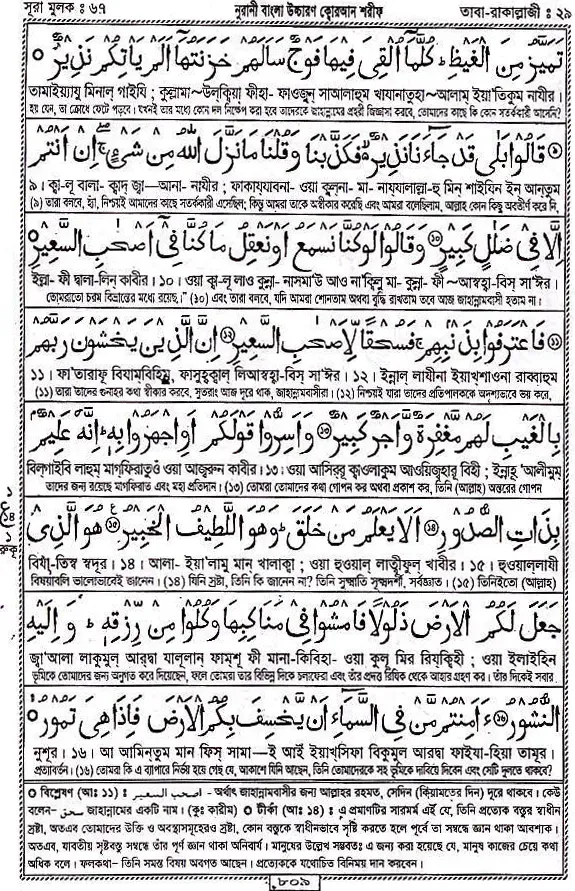 সূরা মূলক : ৬৭
নূরানী বাংলা উচ্চারণ কোরআন শরীফ
তাবা-রাকাল্লাজী : ২৯
تَمَيَّزُ مِنَ الْغَيْظِ كُلَّمَآ اُلْقِيَ فِيْهَا فَوْجٌ سَاَلَهُمْ خَزَنَتُهَآ اَلَمْ يَاْتِكُمْ نَذِيْرٌ
তামাইয়্যাযু মিনাল গাইযি ; কুল্লামা~উল্‌ক্বিয়া ফীহা- ফাওজুন্ সাআলাহুম খাযানাতুহা~আলাম্ ইয়া’তিকুম নাযীর।
হয় যেন, তা ক্রোধে ফেটে পড়বে। যখনই তার মধ্যে কোন দল নিক্ষেপ করা হবে তাদেরকে জাহান্নামের প্রহরী জিজ্ঞাসা করবে, তোমাদের কাছে কি কোন সতর্ককারী আসেনি?
۝٨ قَالُوْا بَلٰى قَدْ جَآءَنَا نَذِيْرٌ فَكَذَّبْنَا وَقُلْنَا مَا نَزَّلَ اللّٰهُ مِنْ شَيْءٍ اِنْ اَنْتُمْ
৯। ক্বা-লূ বালা- ক্বাদ্ জ্বা—আনা- নাযীর ; ফাকায্‌যাবনা- ওয়া ক্বুল্‌না- মা- নায্‌যালাল্লা-হু মিন্ শাইয়িন ইন্ আন্‌তুম
(৯) তারা বলবে, হ্যাঁ, নিশ্চয়ই আমাদের কাছে সতর্ককারী এসেছিল; কিন্তু আমরা তাকে অস্বীকার করেছি এবং আমরা বলেছিলাম, আল্লাহ কোন কিছু অবতীর্ণ করে নি,
اِلَّا فِيْ ضَلٰلٍ كَبِيْرٍ ۝٩ وَقَالُوْا لَوْ كُنَّا نَسْمَعُ اَوْ نَعْقِلُ مَا كُنَّا فِيْٓ اَصْحٰبِ السَّعِيْرِ
ইল্লা- ফী দ্বালা-লিন্ কাবীর। ১০। ওয়া ক্বা-লূ লাও কুন্না- নাসমা‘উ আও না‘ক্বিলু মা- কুন্না- ফী~আস্বহা-বিস্ সা‘ঈর।
তোমরাতো চরম বিভ্রান্তির মধ্যে রয়েছ।” (১০) এবং তারা বলবে, যদি আমরা শোনতাম অথবা বুদ্ধি রাখতাম তবে আজ জাহান্নামবাসী হতাম না।
۝١٠ فَاعْتَرَفُوْا بِذَنْۢبِهِمْ فَسُحْقًا لِّاَصْحٰبِ السَّعِيْرِ ۝١١ اِنَّ الَّذِيْنَ يَخْشَوْنَ رَبَّهُمْ
১১। ফা‘তারাফূ বিযাম্‌বিহিম্, ফাসুহ্ক্বাল্ লিআস্বহা-বিস্ সা‘ঈর। ১২। ইন্নাল্ লাযীনা ইয়াখ্‌শাওনা রাব্বাহুম
(১১) তারা তাদের গুনাহর কথা স্বীকার করবে, সুতরাং আজ দূরে থাক, জাহান্নামবাসীরা। (১২) নিশ্চয়ই যারা তাদের প্রতিপালককে অদৃশ্যভাবে ভয় করে,
بِالْغَيْبِ لَهُمْ مَّغْفِرَةٌ وَّاَجْرٌ كَبِيْرٌ ۝١٢ وَاَسِرُّوْا قَوْلَكُمْ اَوِ اجْهَرُوْا بِهٖ اِنَّهٗ عَلِيْمٌ
বিল্‌গাইবি লাহুম্ মাগ্‌ফিরাতুওঁ ওয়া আজ্‌রুন কাবীর। ১৩। ওয়া আসির্‌রূ ক্বাওলাকুম আওয়িজ্‌হারূ বিহী ; ইন্নাহূ ‘আলীমুম্
তাদের জন্য রয়েছে মাগফিরাত এবং মহা প্রতিদান। (১৩) তোমরা তোমাদের কথা গোপন কর অথবা প্রকাশ কর, তিনি (আল্লাহ) অন্তরের গোপন
১
ع
১৪
১
রুকূ
بِذَاتِ الصُّدُوْرِ ۝١٣ اَلَا يَعْلَمُ مَنْ خَلَقَ وَهُوَ اللَّطِيْفُ الْخَبِيْرُ ۝١٤ هُوَ الَّذِيْ
বিযা-তিস্ব স্বদূর। ১৪। আলা- ইয়া‘লামু মান্ খালাক্বা ; ওয়া হুওয়াল্ লাত্বীফুল্ খাবীর। ১৫। হুওয়াল্লাযী
বিষয়াবলি ভালোভাবেই জানেন। (১৪) যিনি স্রষ্টা, তিনি কি জানেন না? তিনি সূক্ষ্মাতি সূক্ষ্মদর্শী, সর্বজ্ঞাত। (১৫) তিনিইতো (আল্লাহ)
جَعَلَ لَكُمُ الْاَرْضَ ذَلُوْلًا فَامْشُوْا فِيْ مَنَاكِبِهَا وَكُلُوْا مِنْ رِّزْقِهٖ وَاِلَيْهِ
জ্বা‘আলা লাকুমুল্ আর্‌দ্বা যালূলান্ ফাম্‌শূ ফী মানা-কিবিহা- ওয়া কুলূ মির্ রিয্‌ক্বিহী ; ওয়া ইলাইহিন
ভূমিকে তোমাদের জন্য অনুগত করে দিয়েছেন, ফলে তোমরা তার বিভিন্ন দিকে চলাফেরা এবং তাঁর প্রদত্ত রিযিক থেকে আহার গ্রহণ কর। তাঁর দিকেই সবার
النُّشُوْرُ ۝١٥ ءَاَمِنْتُمْ مَّنْ فِي السَّمَآءِ اَنْ يَّخْسِفَ بِكُمُ الْاَرْضَ فَاِذَا هِيَ تَمُوْرُ
নুশূর। ১৬। আ আমিন্‌তুম মান ফিস্ সামা—ই আইঁ ইয়াখ্‌সিফা বিকুমুল আর্‌দ্বা ফাইযা-হিয়া তামূর।
প্রত্যাবর্তন। (১৬) তোমরা কি এ ব্যাপারে নির্ভয় হয়ে গেছ যে, আকাশে যিনি আছেন, তিনি তোমাদেরকে সহ ভূমিকে দাবিয়ে দিবেন এবং সেটি দুলতে থাকবে?
০ বিশ্লেষণ (আঃ ১১) : اصحب السعير - অর্থাৎ জাহান্নামবাসীর জন্য আল্লাহর রহমত, সেদিন (কিয়ামতের দিন) দূরে থাকবে। কেউ
বলেন- سحق জাহান্নামের একটি নাম। (কুঃ কারীম) ০ টীকা (আঃ ১৪) : এ প্রমাণটির সারমর্ম এই যে, তিনি প্রত্যেক বস্তুর স্বাধীন
স্রষ্টা, অতএব তোমাদের উক্তি ও অবস্থাসমূহেরও স্রষ্টা, কোন বস্তুকে স্বাধীনভাবে সৃষ্টি করতে হলে পূর্বে তা সম্বন্ধে জ্ঞান থাকা আবশ্যক।
অতএব, যাবতীয় সৃষ্টবস্তু সম্বন্ধে তাঁর পূর্ণ জ্ঞান থাকা অনিবার্য। মানুষের উল্লেখ সম্ভবতঃ এ জন্য করা হয়েছে যে, মানুষ কাজের চেয়ে কথা
অধিক বলে। ফলকথা- তিনি সমস্ত বিষয় অবগত আছেন। প্রত্যেককে যথোচিত বিনিময় দান করবেন।
৮০৯